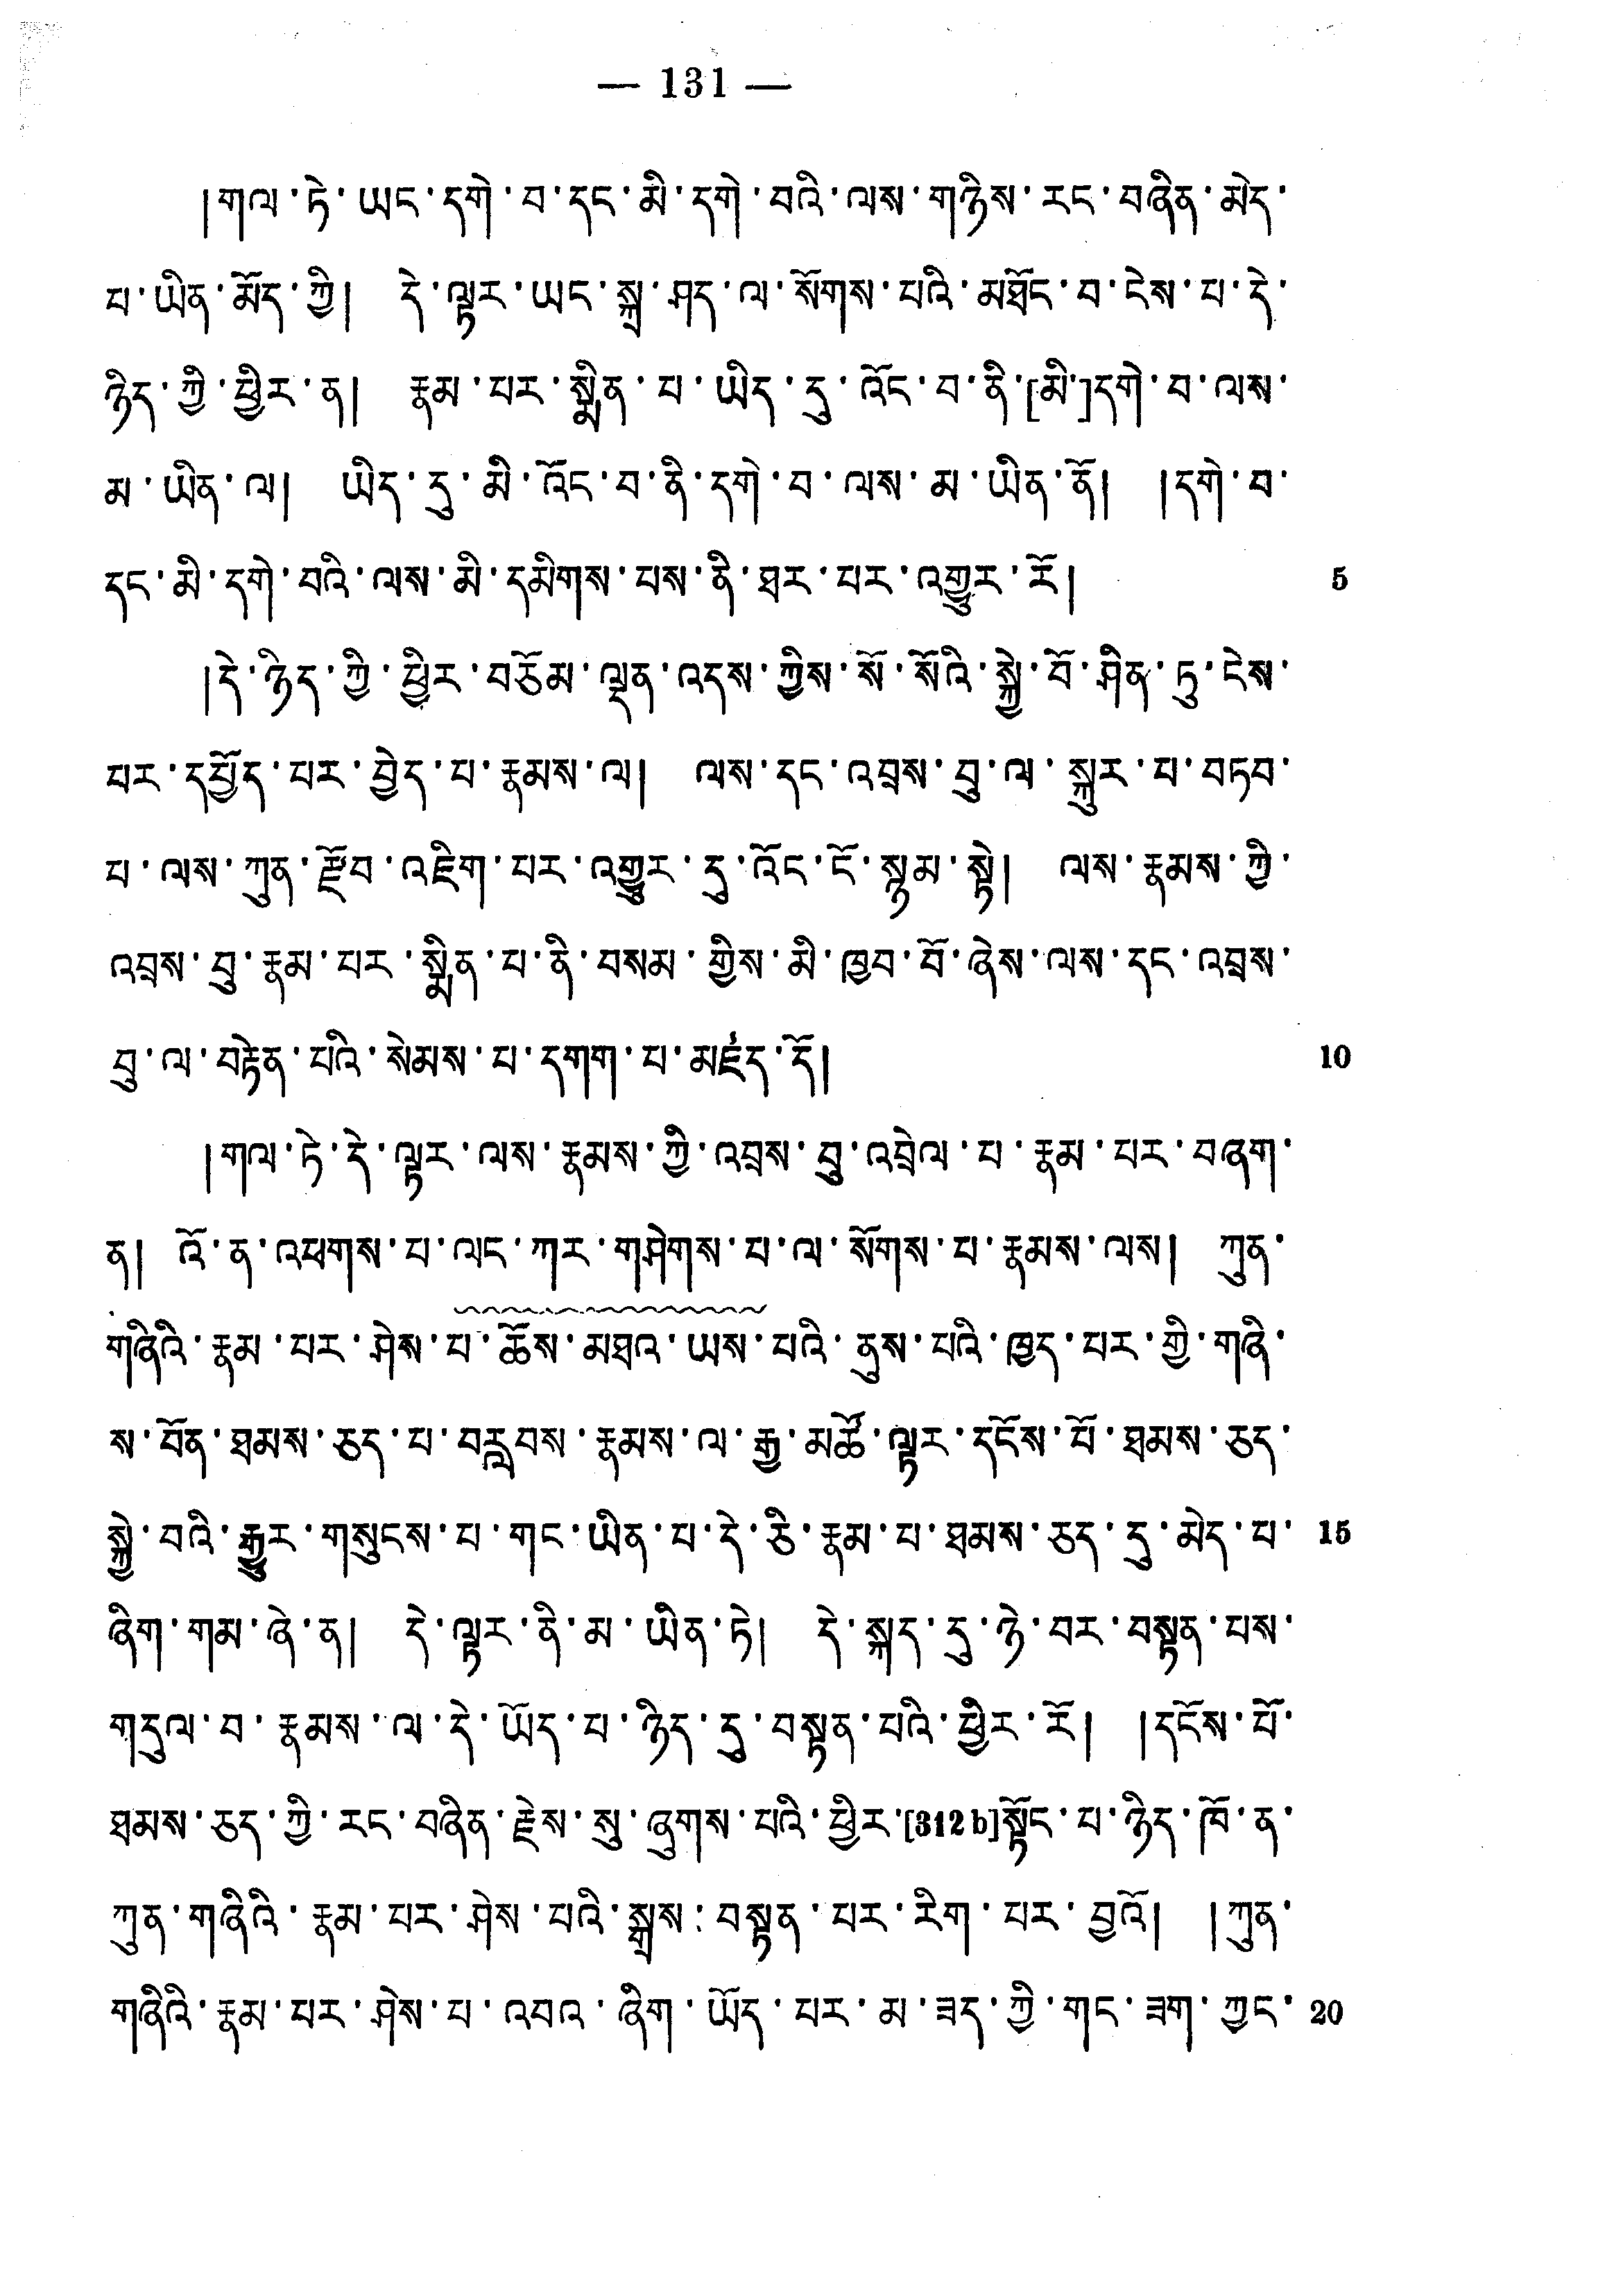 — 131 —
།གལ་ཏེ་ཡང་དགེ་བ་དང་མི་དགེ་བའི་ལས་གཉིས་རང་བཞིན་མེད་
པ་ཡིན་མོད་ཀྱི། དེ་ལྟར་ཡང་སྐྲ་ཤད་ལ་སོགས་པའི་མཐོང་བ་ངེས་པ་དེ་
ཉིད་ཀྱི་ཕྱིར་ན། རྣམ་པར་སྨིན་པ་ཡིད་དུ་འོང་བ་ནི་[མི་]དགེ་བ་ལས་
མ་ཡིན་ལ། ཡིད་དུ་མི་འོང་བ་ནི་དགེ་བ་ལས་མ་ཡིན་ནོ། །དགེ་བ་
དང་མི་དགེ་བའི་ལས་མི་དམིགས་པས་ནི་ཐར་པར་འགྱུར་རོ། 5
།དེ་ཉིད་ཀྱི་ཕྱིར་བཅོམ་ལྡན་འདས་ཀྱིས་སོ་སོའི་སྐྱེ་བོ་ཤིན་ཏུ་ངེས་
པར་དཔྱོད་པར་བྱེད་པ་རྣམས་ལ། ལས་དང་འབྲས་བུ་ལ་སྐུར་པ་བཏབ་
པ་ལས་ཀུན་རྫོབ་འཇིག་པར་འགྱུར་དུ་འོང་ངོ་སྙམ་སྟེ། ལས་རྣམས་ཀྱི་
འབྲས་བུ་རྣམ་པར་སྨིན་པ་ནི་བསམ་གྱིས་མི་ཁྱབ་བོ་ཞེས་ལས་དང་འབྲས་
བུ་ལ་བརྟེན་པའི་སེམས་པ་དགག་པ་མཛད་དོ། 10
།གལ་ཏེ་དེ་ལྟར་ལས་རྣམས་ཀྱི་འབྲས་བུ་འབྲེལ་པ་རྣམ་པར་བཞག་
ན། འོ་ན་འཕགས་པ་ལང་ཀར་གཤེགས་པ་ལ་སོགས་པ་རྣམས་ལས། ཀུན་
གཞིའི་རྣམ་པར་ཤེས་པ་ཆོས་མཐའ་ཡས་པའི་ནུས་པའི་ཁྱད་པར་གྱི་གཞི་
ས་བོན་ཐམས་ཅད་པ་བརླབས་རྣམས་ལ་རྒྱ་མཚོ་ལྟར་དངོས་པོ་ཐམས་ཅད་
སྐྱེ་བའི་རྒྱུར་གསུངས་པ་གང་ཡིན་པ་དེ་ཅི་རྣམ་པ་ཐམས་ཅད་དུ་མེད་པ་ 15
ཞིག་གམ་ཞེ་ན། དེ་ལྟར་ནི་མ་ཡིན་ཏེ། དེ་སྐད་དུ་ཉེ་བར་བསྟན་པས་
གདུལ་བ་རྣམས་ལ་དེ་ཡོད་པ་ཉིད་དུ་བསྟན་པའི་ཕྱིར་རོ། །དངོས་པོ་
ཐམས་ཅད་ཀྱི་རང་བཞིན་རྗེས་སུ་ཞུགས་པའི་ཕྱིར་[312b]སྟོང་པ་ཉིད་ཁོ་ན་
ཀུན་གཞིའི་རྣམ་པར་ཤེས་པའི་སྒྲས་བསྟན་པར་རིག་པར་བྱའོ། །ཀུན་
གཞིའི་རྣམ་པར་ཤེས་པ་འབའ་ཞིག་ཡོད་པར་མ་ཟད་ཀྱི་གང་ཟག་ཀྱང་ 20